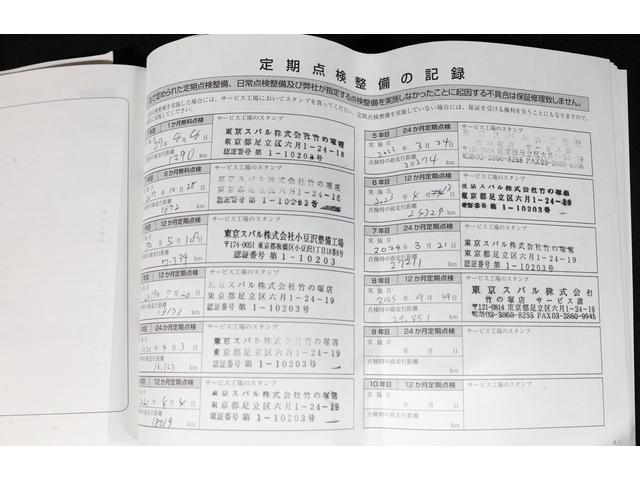 定期点検整備の記録
法で定められた定期点検整備、日常点検整備及び弊社が指定する点検整備を実施しなかったことに起因する不具合は保証修理致しません。
点検整備を実施した場合には、サービス工場においてスタンプを貰ってください。定期点検整備を実施していない場合には、保証を受ける権利を失うこともありますので、
1か月無料点検
サービス工場のスタンプ
東京スバル株式会社竹の塚店
東京都足立区六月1-24-19
認証番号 第1-10203号
1290 km
6か月無料点検
サービス工場のスタンプ
東京スバル株式会社竹の塚店
東京都足立区六月1-24-19
認証番号 第1-10203号
km
12か月定期点検
サービス工場のスタンプ
30年 5月18日
東京スバル株式会社小豆沢整備工場
〒174-0051 東京都板橋区小豆沢1丁目18
認証番号 第1-10203
7,334 km
12か月定期点検
サービス工場のスタンプ
2019年 5月20日
東京スバル株式会社竹の塚店
東京都足立区六月1-24-19
認証番号 第1-10203号
km
24か月定期点検
サービス工場のスタンプ
2020年 4月3日
東京スバル株式会社竹の塚店
東京都足立区六月1-24-19
認証番号 第1-10203号
16,123 km
12か月定期点検
サービス工場のスタンプ
東京スバル株式会社竹の塚店
東京都足立区六月1-24-19
認証番号 第1-10203号
18019 km
5年目 24か月定期点検
サービス工場のスタンプ
実施日
2022年 3月24日
点検時の総走行距離
20274 km
6年目 12か月定期点検
サービス工場のスタンプ
実施日
2023年 4月
点検時の総走行距離
km
東京スバル株式会社竹の塚店
東京都足立区六月1-24-19
認証番号 第1-10203号
7年目 12か月定期点検
サービス工場のスタンプ
実施日
2024年 3月21日
点検時の総走行距離
km
東京スバル株式会社竹の塚店
東京都足立区六月1-24-19
認証番号 第1-10203号
8年目
サービス工場のスタンプ
実施日
2025年 4月19日
点検時の総走行距離
km
東京スバル株式会社
竹の塚店 サービス課
〒121-0814 東京都足立区六月1-24-19
電話03-3860-8255 FAX03-3860-9945
9年目 24か月定期点検
サービス工場のスタンプ
実施日
年 月 日
点検時の総走行距離
km
10年目 12か月定期点検
サービス工場のスタンプ
実施日
年 月 日
点検時の総走行距離
km